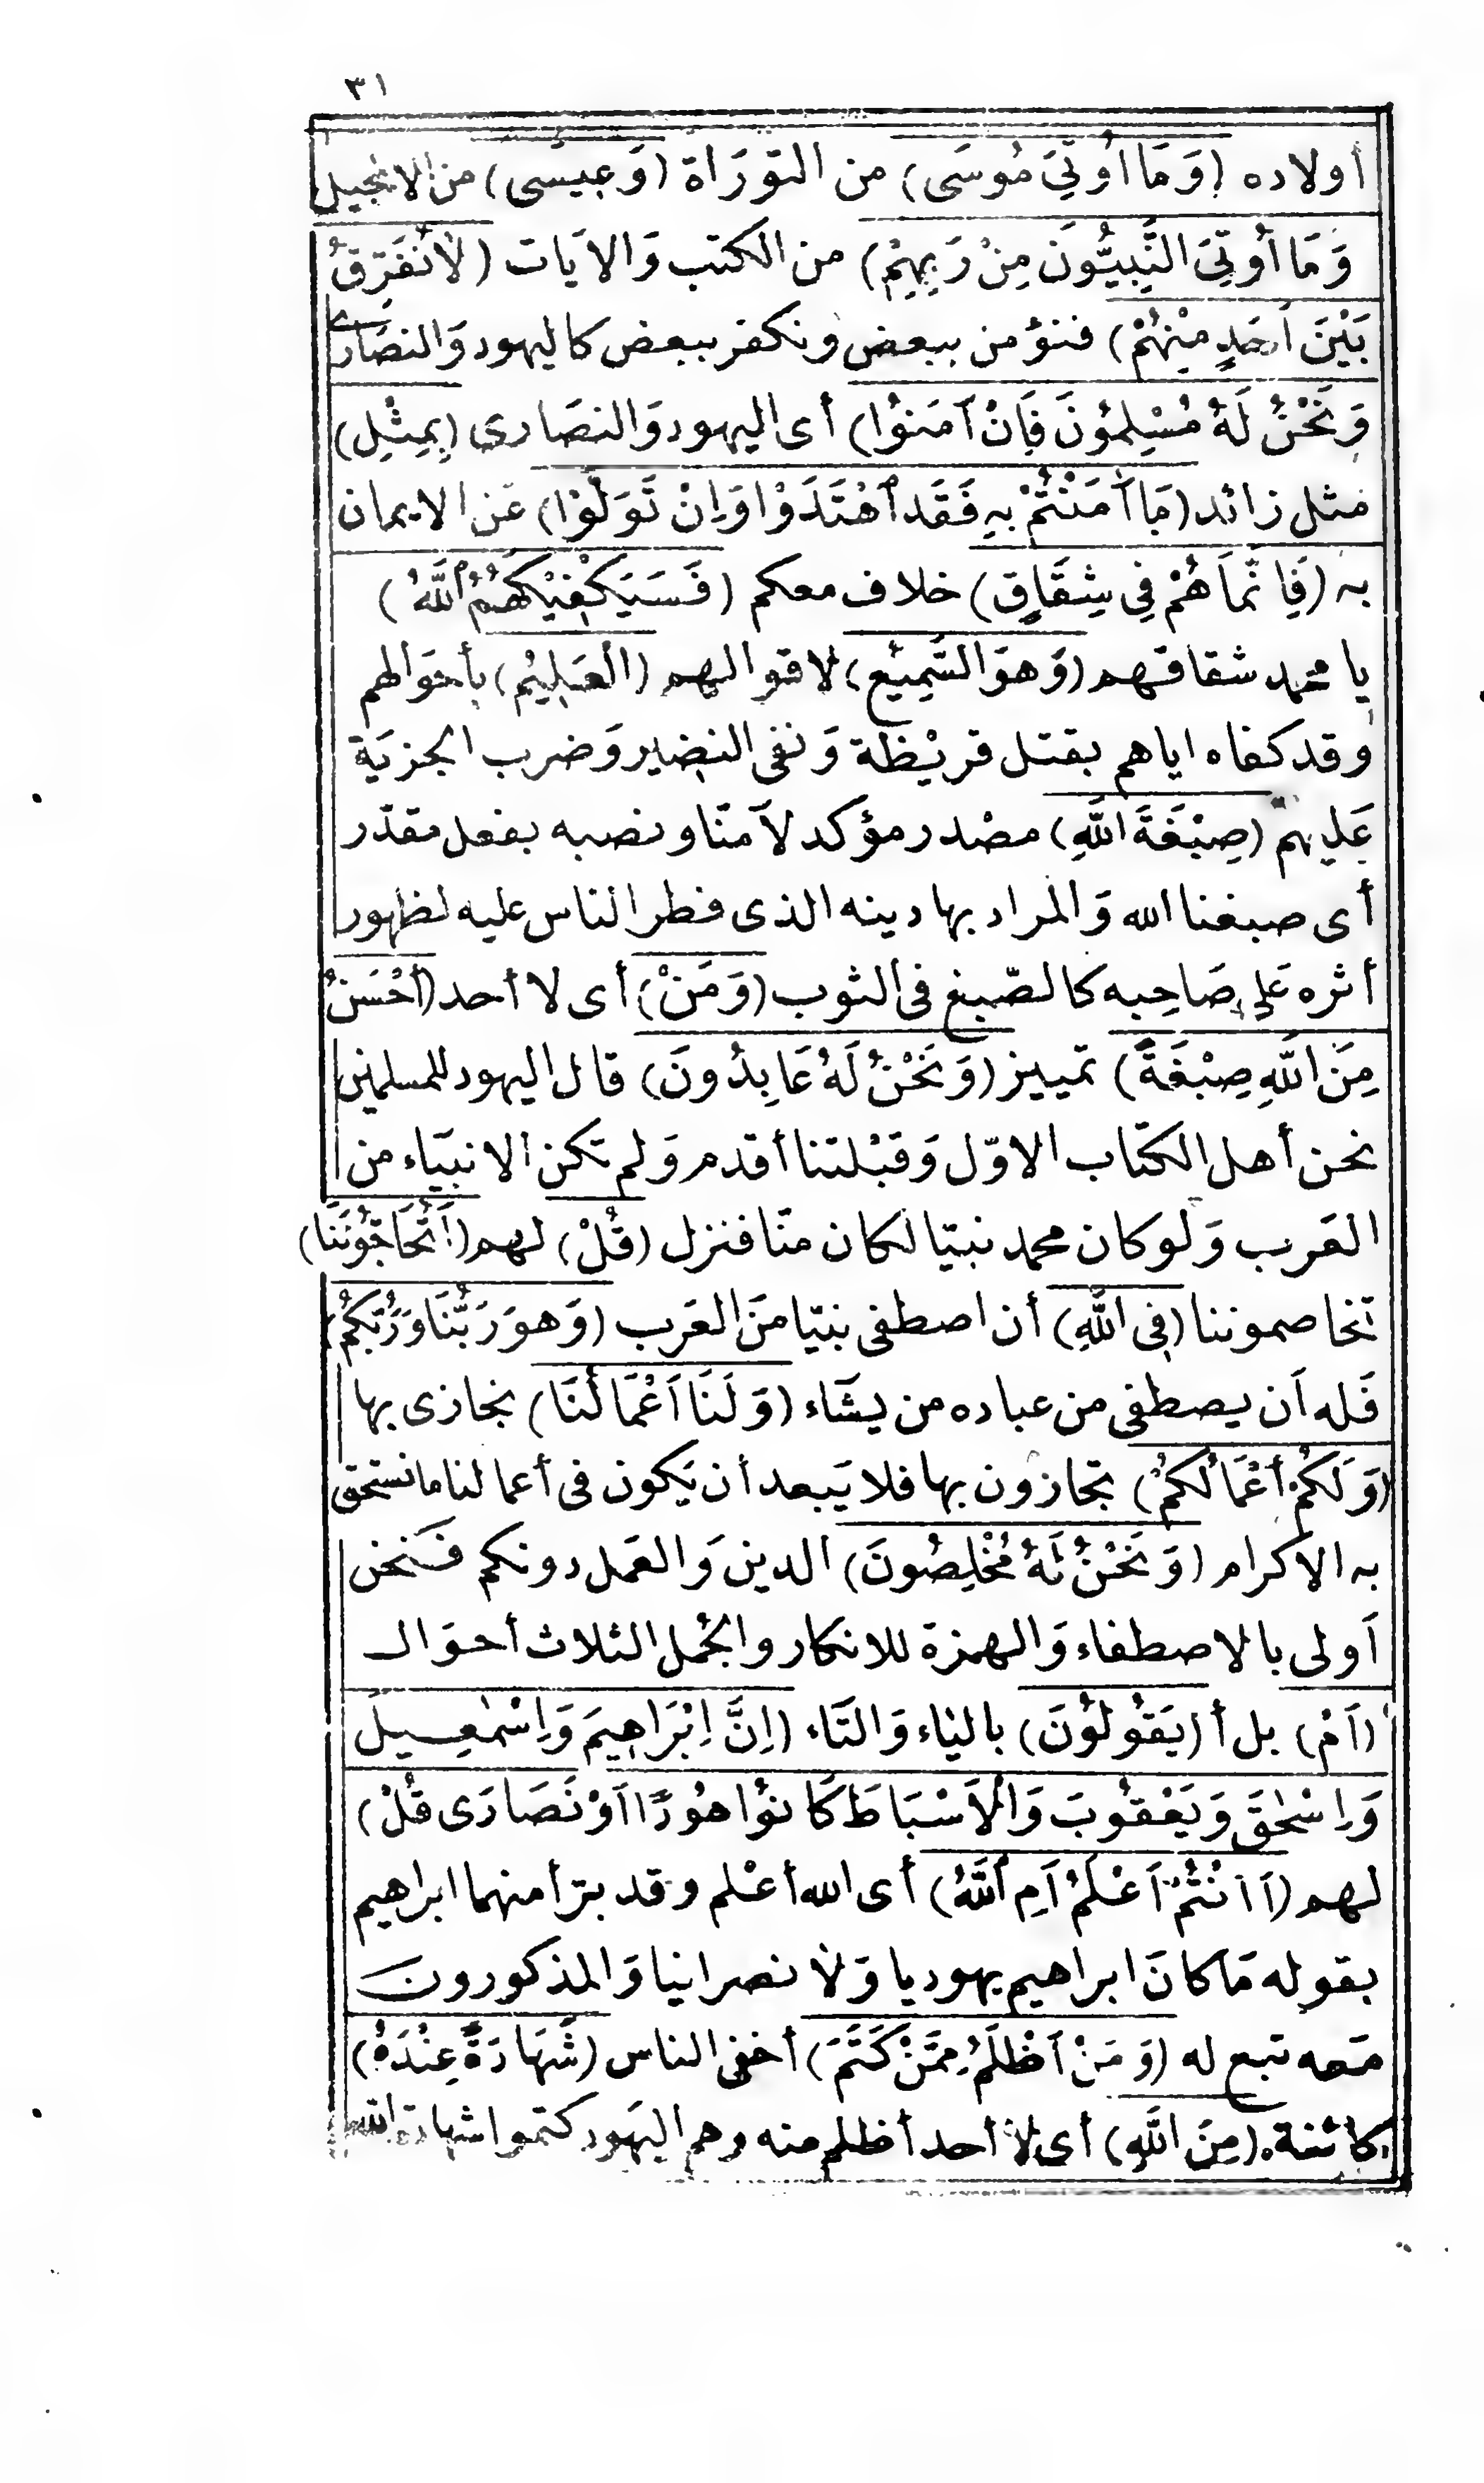 ٣١
أولاده (وَمَا أُوتِيَ مُوسَى) من التورَاة (وَعِيسَى) من الانجيل
وَمَا أُوتِيَ النَّبِيُّونَ مِنْ رَبِّهِمْ) من الكتب وَالاَيات (لاَ نُفَرِّقُ
بَيْنَ أَحَدٍ مِنْهُمْ) فنؤمن ببعض ونكفر ببعض كاليهود وَالنصَارى
وَنَحْنُ لَهُ مُسْلِمُونَ فَاِنْ آمَنُوا) أى اليهود وَالنصَارى (بِمِثْلِ)
مثل زائد (مَا آمَنْتُمْ بِهِ فَقَد ٱهْتَدَوْا وَاِنْ تَوَلَّوْا) عَن الايمان
به (فَاِنَّمَا هُمْ فِي شِقَاقٍ) خلاف معكم (فَسَيَكْفِيْكَهُمُ ٱللَّهُ)
يا محمد شقاقهم (وَهوَ السَّمِيْع) لاقوالهم (الْعَلِيْم) بأحوَالهم
وقد كفاه اياهم بقتل قريْظَة وَنفى النضير وَضرب الجزيَة
عَليهمْ (صِبْغَةَ اللَّهِ) مصْدر مؤكد لآمنّا ونصبه بفعل مقدّر
أى صبغنا الله وَالمراد بها دينه الذى فطر الناس عليه لظهور
أثره عَلى صَاحِبه كالصّبغ فى الثوب (وَمَنْ) أى لا أحد (أَحْسَنُ
مِنَ اللَّهِ صِبْغَةً) تمييز (وَنَحْنُ لَهُ عَابِدُونَ) قال اليهود للمسلمين
نحن أهل الكتَاب الاوّل وَقبْلتنا أقدم وَلم تكن الانبيَاء من
العَرب وَلو كان محمد نبيّا لكان منّا فنزل (قُلْ) لهم (أَتُحَاجُّونَنَا)
تخاصموننا (فِى اللَّهِ) أن اصطفى نبيّا منَ العَرب (وَهوَ رَبُّنَا وَرَبُّكُمْ)
فَله أَن يصطفى من عباده من يشَاء (وَلَنَا اَعْمَالُنَا) نجازى بها
(وَلَكُمْ أَعْمَالُكُمْ) تجازون بها فلا يَبعد أن يَكون فى أعمالنا ما نستحق
به الاكرام (وَنَحْنُ لَهُ مُخْلِصُونَ) الدين وَالعَمل دونكم فَنحن
أَولى بالاصطفاء وَالهمزة للانكار والجُمل الثلاث أحوَال
(اَمْ) بل أ (يَقُولُونَ) باليَاء وَالتَاء (اِنَّ اِبْرَاهِيمَ وَاِسْمٰعِيلَ
وَاِسْحٰقَ وَيَعْقُوبَ وَالْاَسْبَاطَ كَانُوا هُودًا اَوْ نَصَارَى قُلْ)
لهم (اَاَنْتُمْ اَعْلَمُ اَمِ ٱللَّهُ) أى الله أعْلم وقد برّأ منهما ابراهيم
بقوله مَا كانَ ابراهيم يهوديا وَلاَ نصرانيا وَالمذكورون
مَعه تبع له (وَمَنْ اَظْلَمُ مِمَّنْ كَتَمَ) أخفى الناس (شَهَادَةً عِنْدَهُ)
كائنة (مِنَ اللَّهِ) أى لا أحد أظلم منه وهم اليهَود كتموا شهادة الله